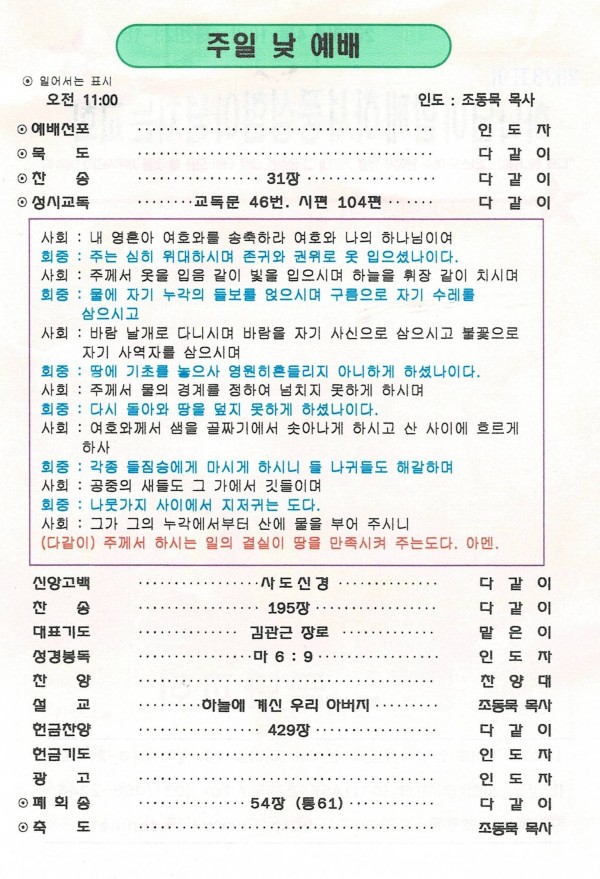 주일 낮 예배
⊙ 일어서는 표시
오전 11:00 인도 : 조동묵 목사
⊙ 예배선포 ······································ 인 도 자
⊙ 묵 도 ······································ 다 같 이
⊙ 찬 송 ················ 31장 ················ 다 같 이
⊙ 성시교독 ········ 교독문 46번. 시편 104편 ······ 다 같 이
사회 : 내 영혼아 여호와를 송축하라 여호와 나의 하나님이여
회중 : 주는 심히 위대하시며 존귀와 권위로 옷 입으셨나이다.
사회 : 주께서 옷을 입음 같이 빛을 입으시며 하늘을 휘장 같이 치시며
회중 : 물에 자기 누각의 들보를 얹으시며 구름으로 자기 수레를
삼으시고
사회 : 바람 날개로 다니시며 바람을 자기 사신으로 삼으시고 불꽃으로
자기 사역자를 삼으시며
회중 : 땅에 기초를 놓으사 영원히흔들리지 아니하게 하셨나이다.
사회 : 주께서 물의 경계를 정하여 넘치지 못하게 하시며
회중 : 다시 돌아와 땅을 덮지 못하게 하셨나이다.
사회 : 여호와께서 샘을 골짜기에서 솟아나게 하시고 산 사이에 흐르게
하사
회중 : 각종 들짐승에게 마시게 하시니 들 나귀들도 해갈하며
사회 : 공중의 새들도 그 가에서 깃들이며
회중 : 나뭇가지 사이에서 지저귀는 도다.
사회 : 그가 그의 누각에서부터 산에 물을 부어 주시니
(다같이) 주께서 하시는 일의 결실이 땅을 만족시켜 주는도다. 아멘.
신앙고백 ················ 사도신경 ·············· 다 같 이
찬 송 ················ 195장 ················ 다 같 이
대표기도 ·············· 김관근 장로 ············ 맡 은 이
성경봉독 ··············· 마 6 : 9 ················ 인 도 자
찬 양 ······································ 찬 양 대
설 교 ········ 하늘에 계신 우리 아버지 ········· 조동묵 목사
헌금찬양 ················ 429장 ················ 다 같 이
헌금기도 ······································ 인 도 자
광 고 ······································ 인 도 자
⊙ 폐 회 송 ·············· 54장 (통61) ············ 다 같 이
⊙ 축 도 ······································ 조동묵 목사